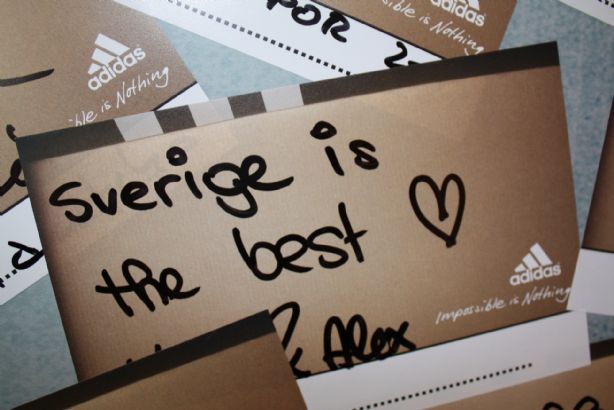 POR
adidas
Impossible is Nothing
adidas
ble is Nothing
sverige is
the best ♡
& Alex
adidas
Impossible is Nothing